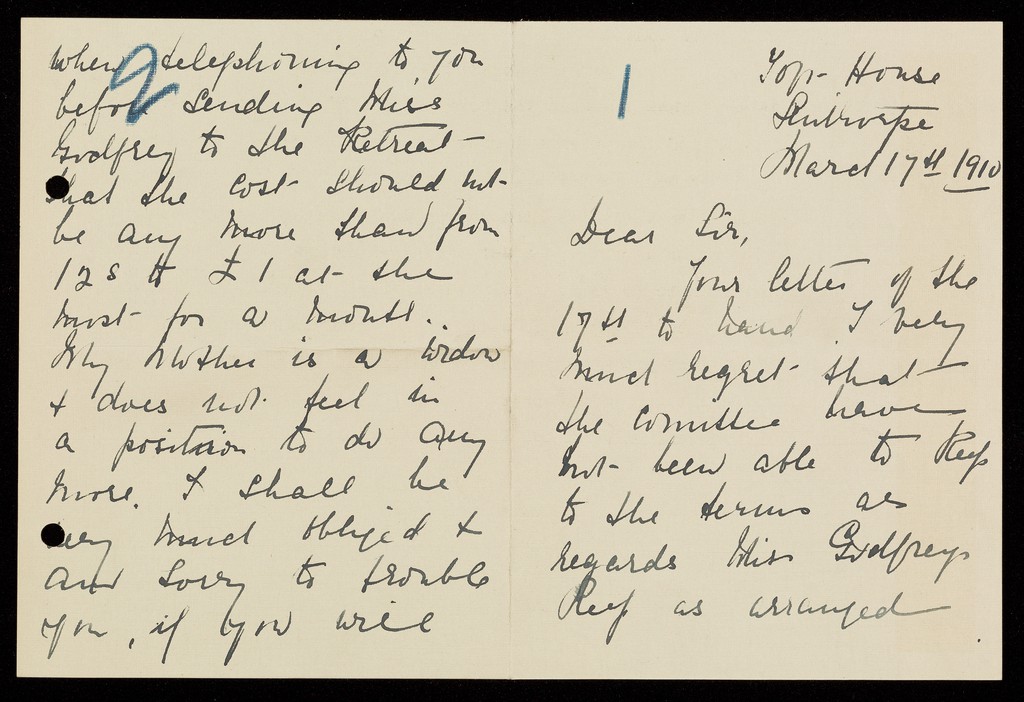 1
Top House
March 17th 1910
Dear Sir,
Your letter of the
17th to hand I very
much regret that
the comittee have
not been able to keep
to the terms as
regards Miss Godfreys
keep as arranged
2
when telephoning to you
before sending Miss
Godfrey to the Retreat
that the cost should not
be any more than from
12s to £1 at the
most for a month.
My Mother is a widow
& does not feel in
a position to do any
more. I shall be
very much obliged &
and sorry to trouble
you, if you will